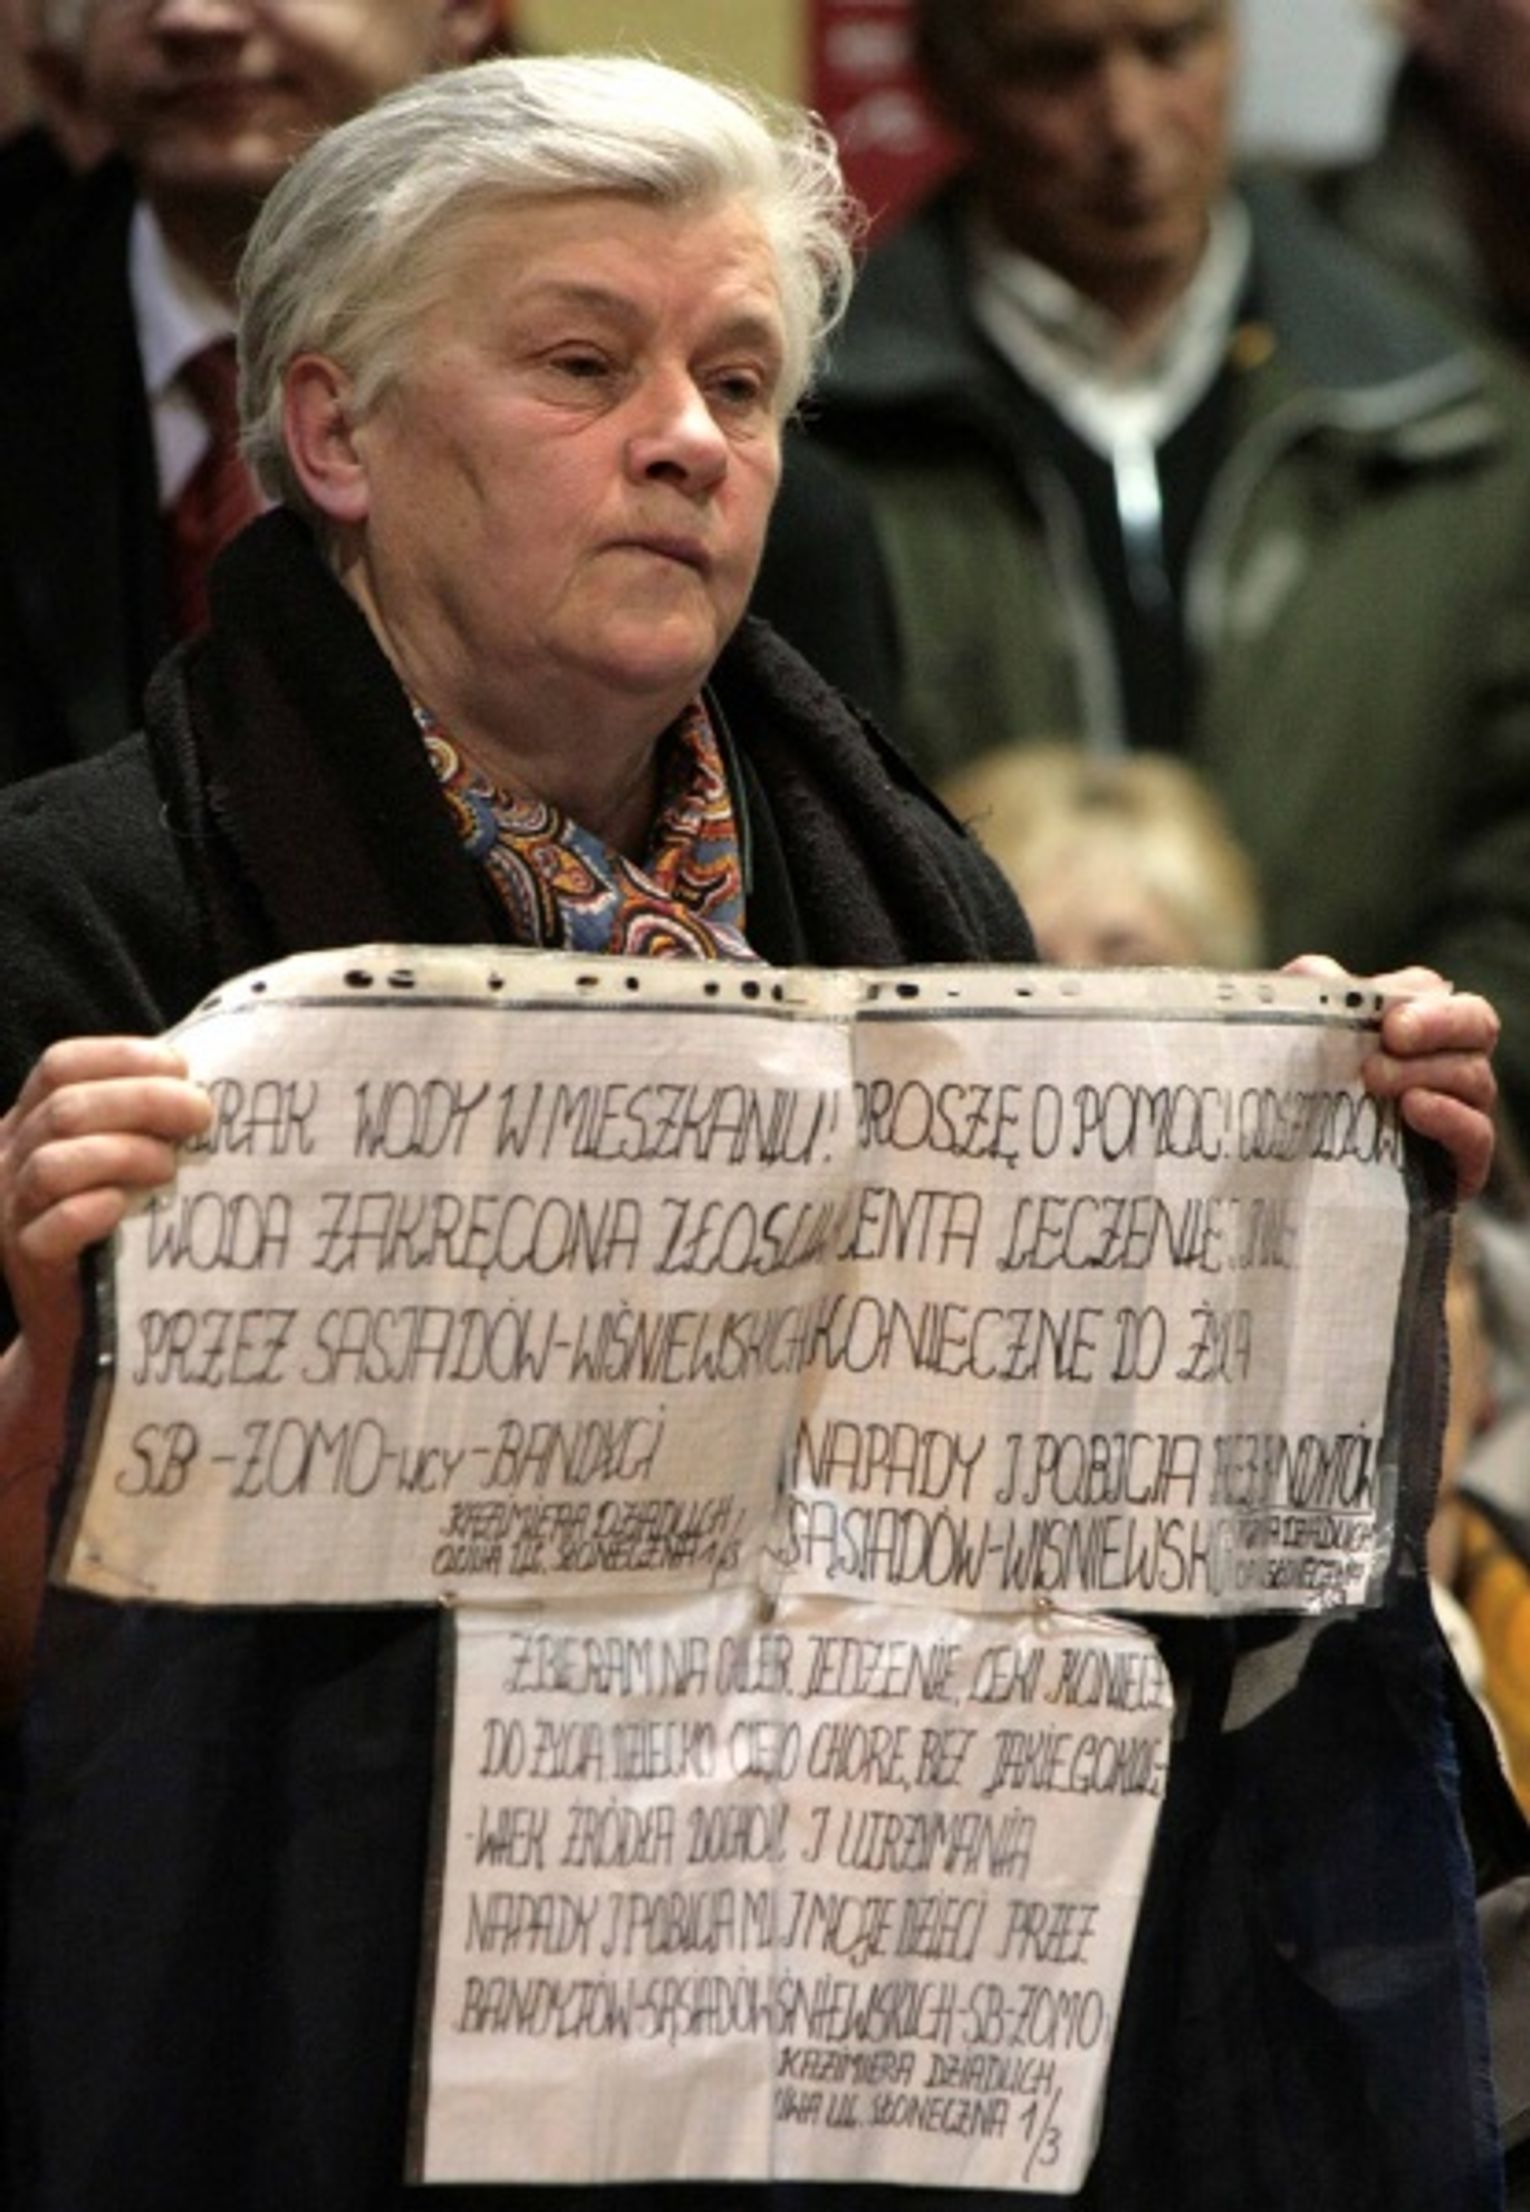 BRAK WODY W MIESZKANIU!
WODA ZAKRĘCONA ZŁOŚLIWIE
PRZEZ SĄSIADÓW-WIŚNIEWSKICH
SB-ZOMO-wcy-BANDYCI
KAZIMIERA DZIADUCH,
UL. SŁONECZNA 1/3
PROSZĘ O POMOC!
LECZENIE
KONIECZNE DO ŻYCIA
NAPADY I POBICIA BANDYTÓW
SĄSIADÓW-WIŚNIEWSK
ZBIERAM NA CHLEB, JEDZENIE, LEKI KONIECZ
DO ŻYCIA. DZIECKO CIĘŻKO CHORE, BEZ JAKIEGOKOL-
-WIEK ŹRÓDŁA DOCHODU I UTRZYMANIA
NAPADY I POBICIA MNIE I MOJE DZIECI PRZEZ
BANDYTÓW-SĄSIADÓW WIŚNIEWSKICH-SB-ZOMO
KAZIMIERA DZIADUCH,
UL. SŁONECZNA 1/3